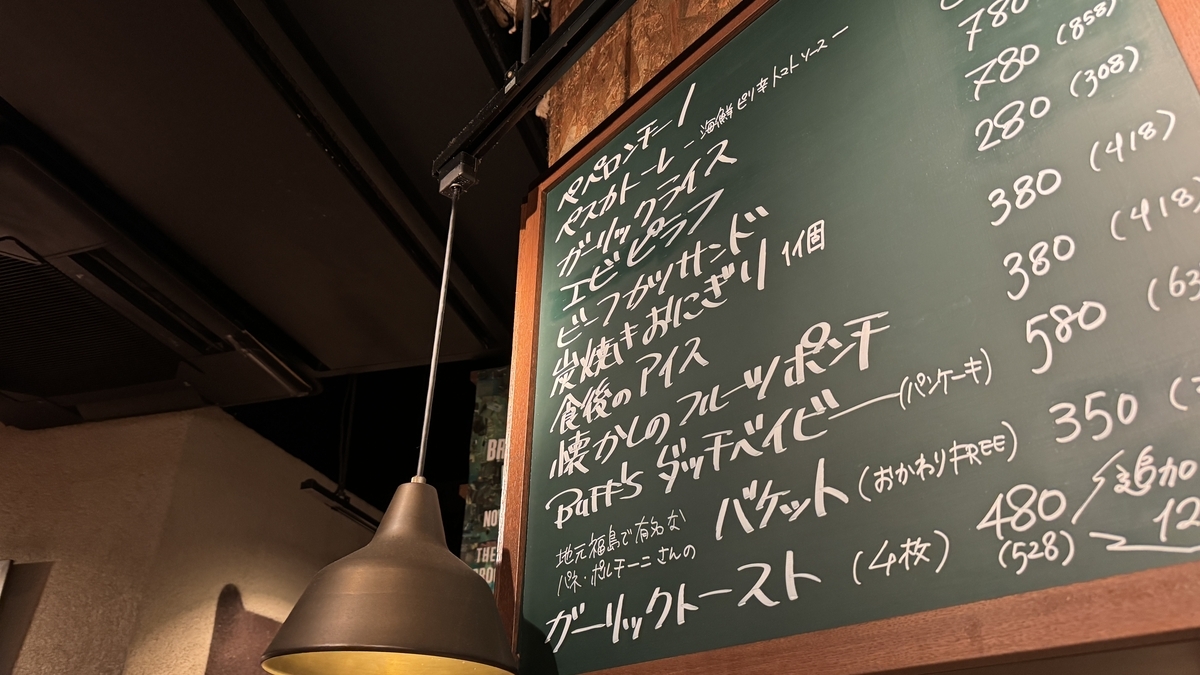 ペペロンチーノ
ペスカトーレ - 海鮮ピリ辛トマトソース - 780
ガーリックライス 780 (858)
エビピラフ
ビーフカツサンド
炭焼きおにぎり 1個 280 (308)
食後のアイス 380 (418)
懐かしのフルーツポンチ 380 (418)
Buff's ダッチベイビー (パンケーキ) 580
地元福島で有名な
パネ・ポルチーニさんの
バケット (おかわりFREE) 350
ガーリックトースト (4枚) 480 (528)
追加
BR
NO
THE